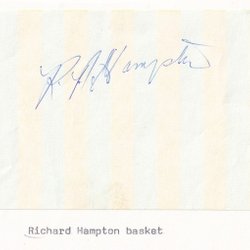 R. A. Hampton
Richard Hampton basket